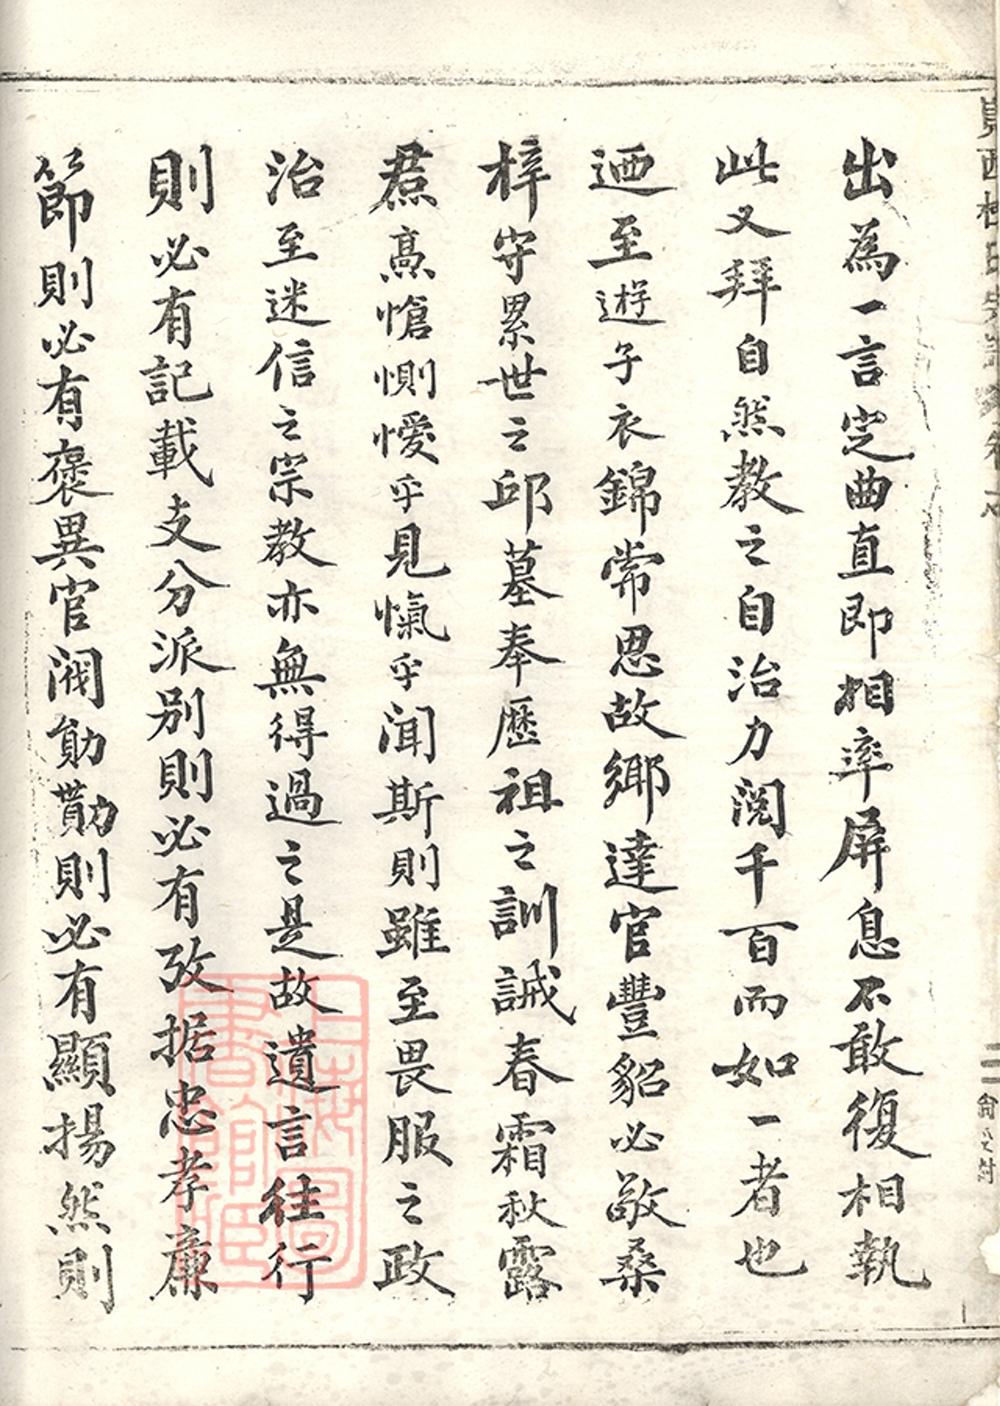 出為一言定曲直即相率屏息不敢復相執
此又拜自然教之自治力閱千百而如一者也
迺至遊子衣錦常思故鄉達官豐貂必敬桑
梓守累世之邱墓奉歷祖之訓誡春霜秋露
焄熇愴惻懓乎見愾乎聞斯則雖至畏服之政
治至迷信之宗教亦無得過之是故遺言往行
則必有記載支分派別則必有攷据忠孝廉
節則必有褒異官閥勛勩則必有顯揚然則
上海圖書館藏